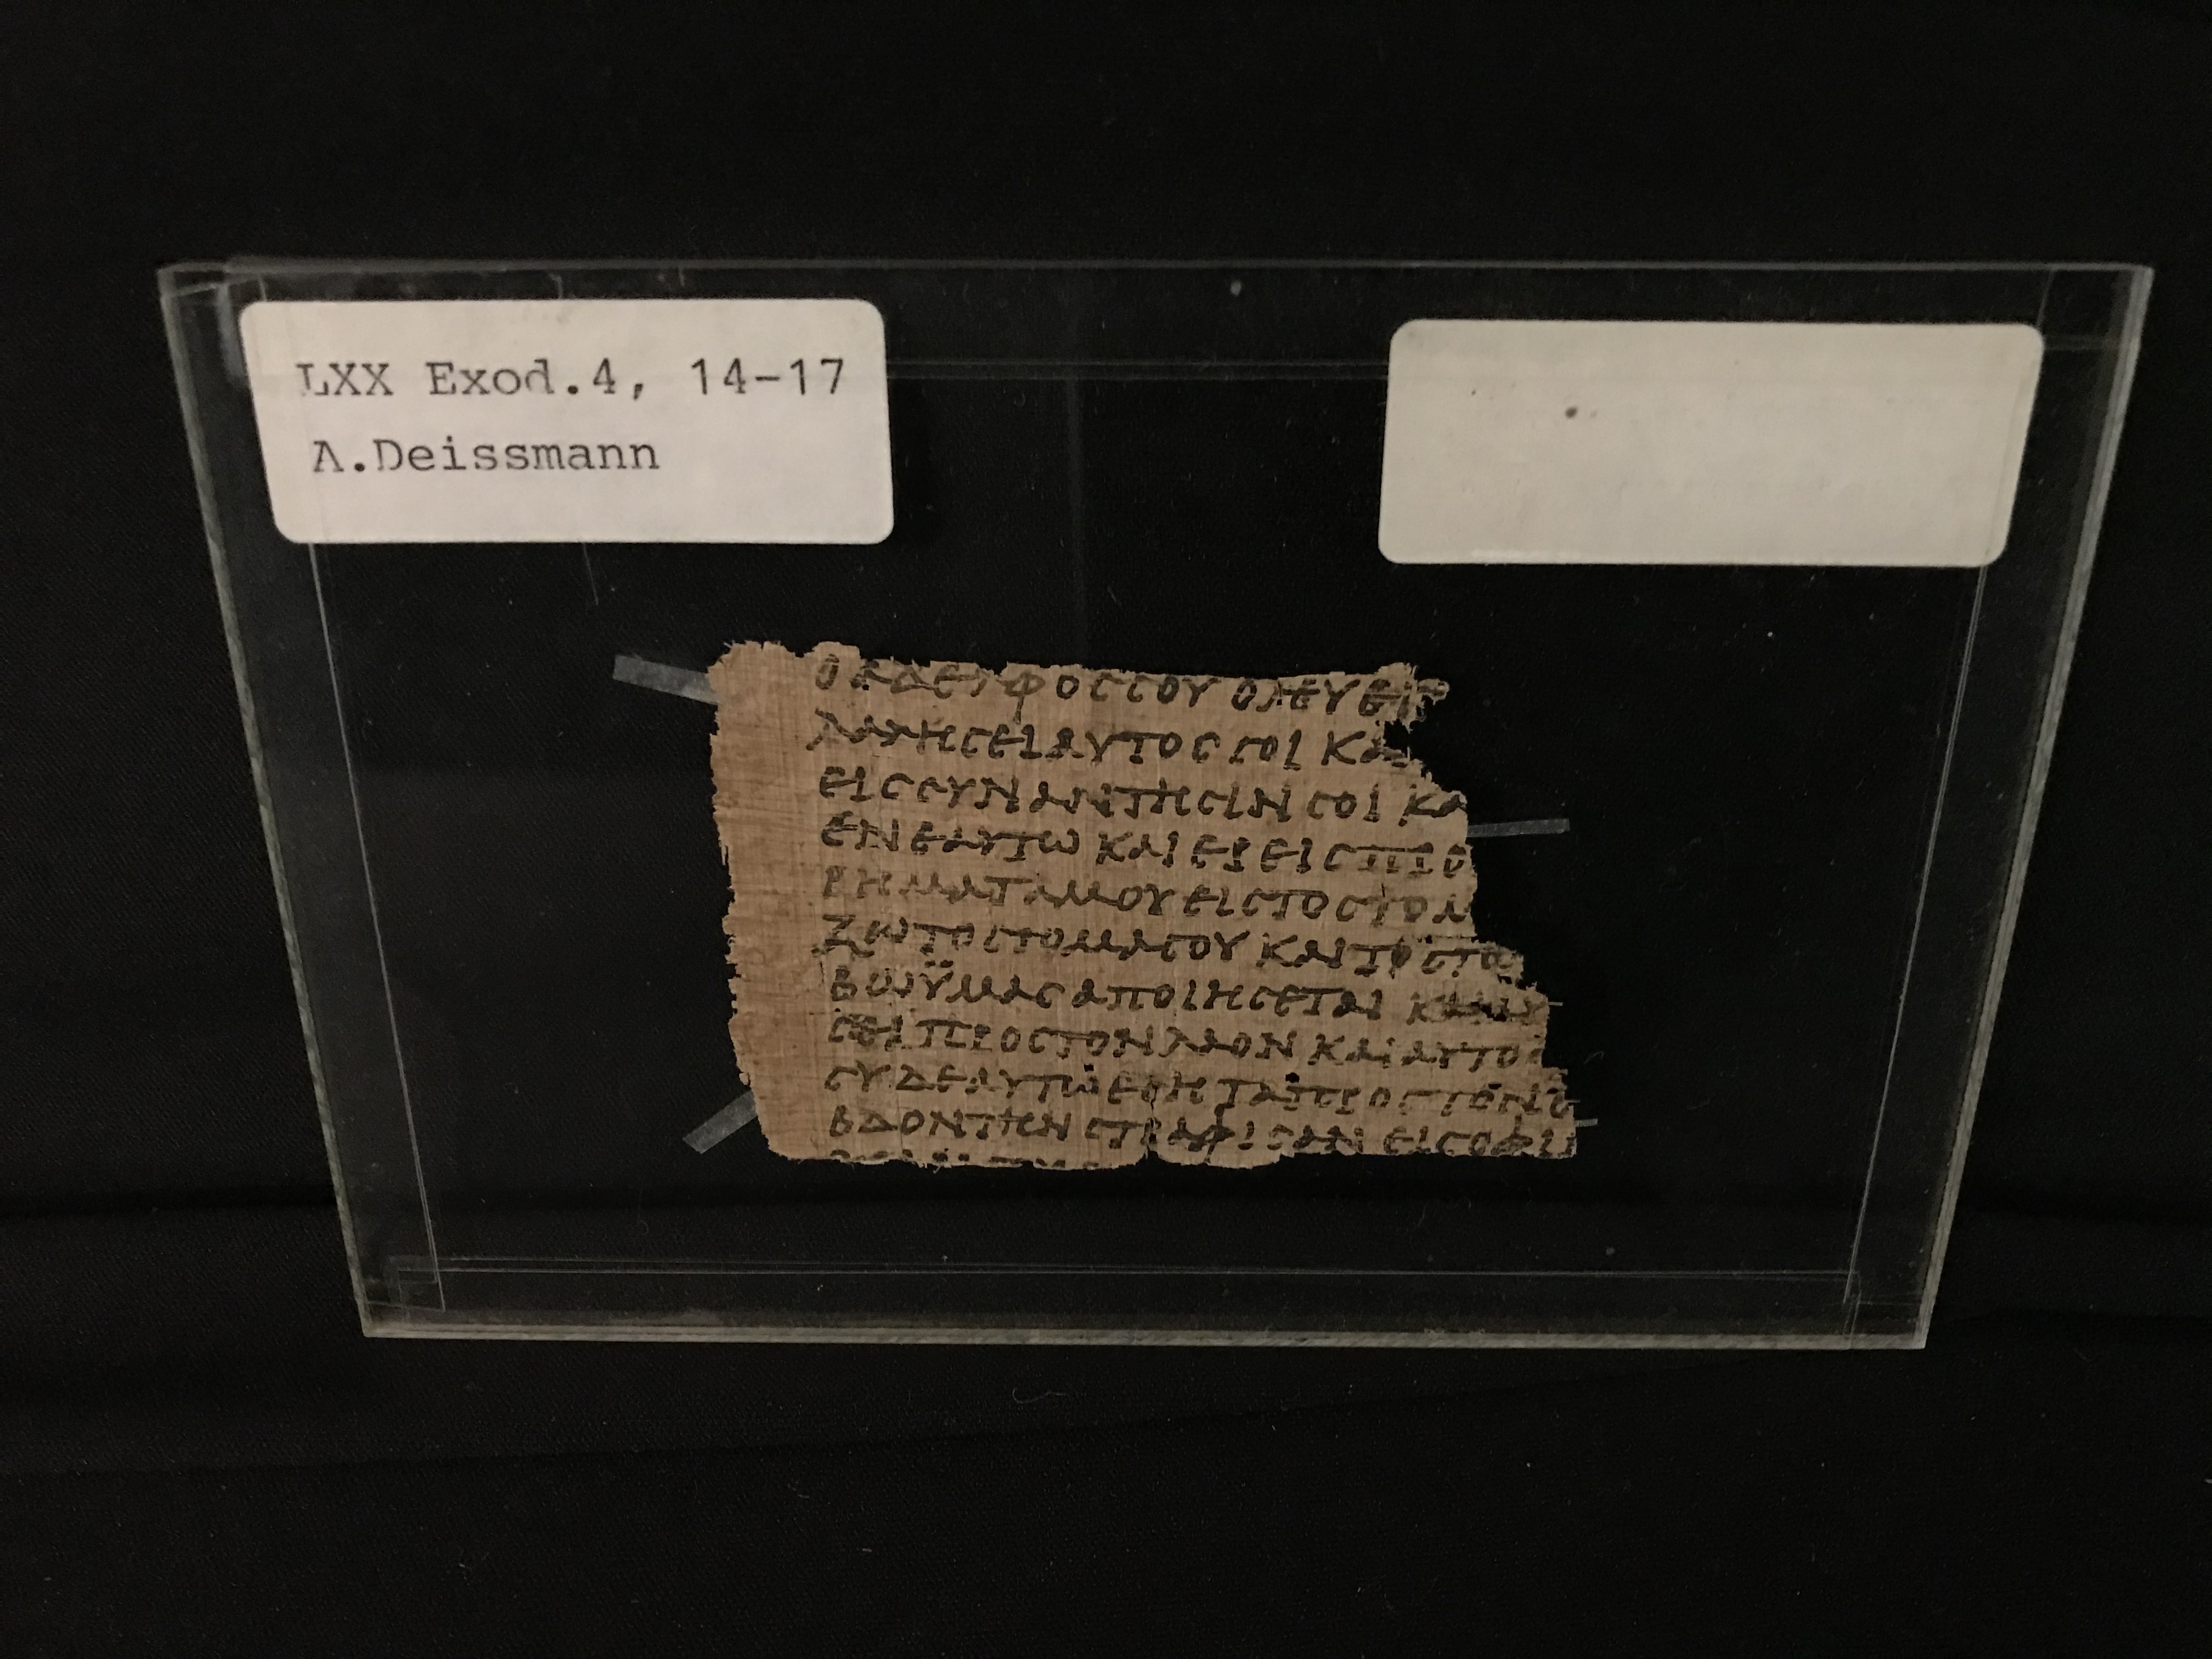 LXX Exod.4, 14-17
A.Deissmann
ΟΑΔΕΛΦΟCCΟΥ Ο ΛΕΥΕΙΤ
ΛΑΛΗCΕΙ ΑΥΤΟC CΟΙ ΚΑ
ΕΙC CΥΝΑΝΤΗCΙΝ CΟΙ ΚΑ
ΕΝ ΕΑΥΤΩ ΚΑΙ ΕΡΕΙC ΠΡΟ
ΡΗΜΑΤΑ ΜΟΥ ΕΙC ΤΟ CΤΟΜ
ΞΩ ΤΟ CΤΟΜΑ CΟΥ ΚΑΙ ΤΟ CΤΟ
ΒΩ ΫΜΑC Α ΠΟΙΗCΕΤΑΙ
CΕΙ ΠΡΟC ΤΟΝ ΛΑΟΝ ΚΑΙ ΑΥΤΟ
CΥ ΔΕ ΑΥΤΩ ΕCΗ ΤΑ ΠΡΟC ΤΟΝ
ΒΔΟΝ ΤΗΝ CΤΡΑΦΙCΑΝ ΕΙC ΟΦΙ